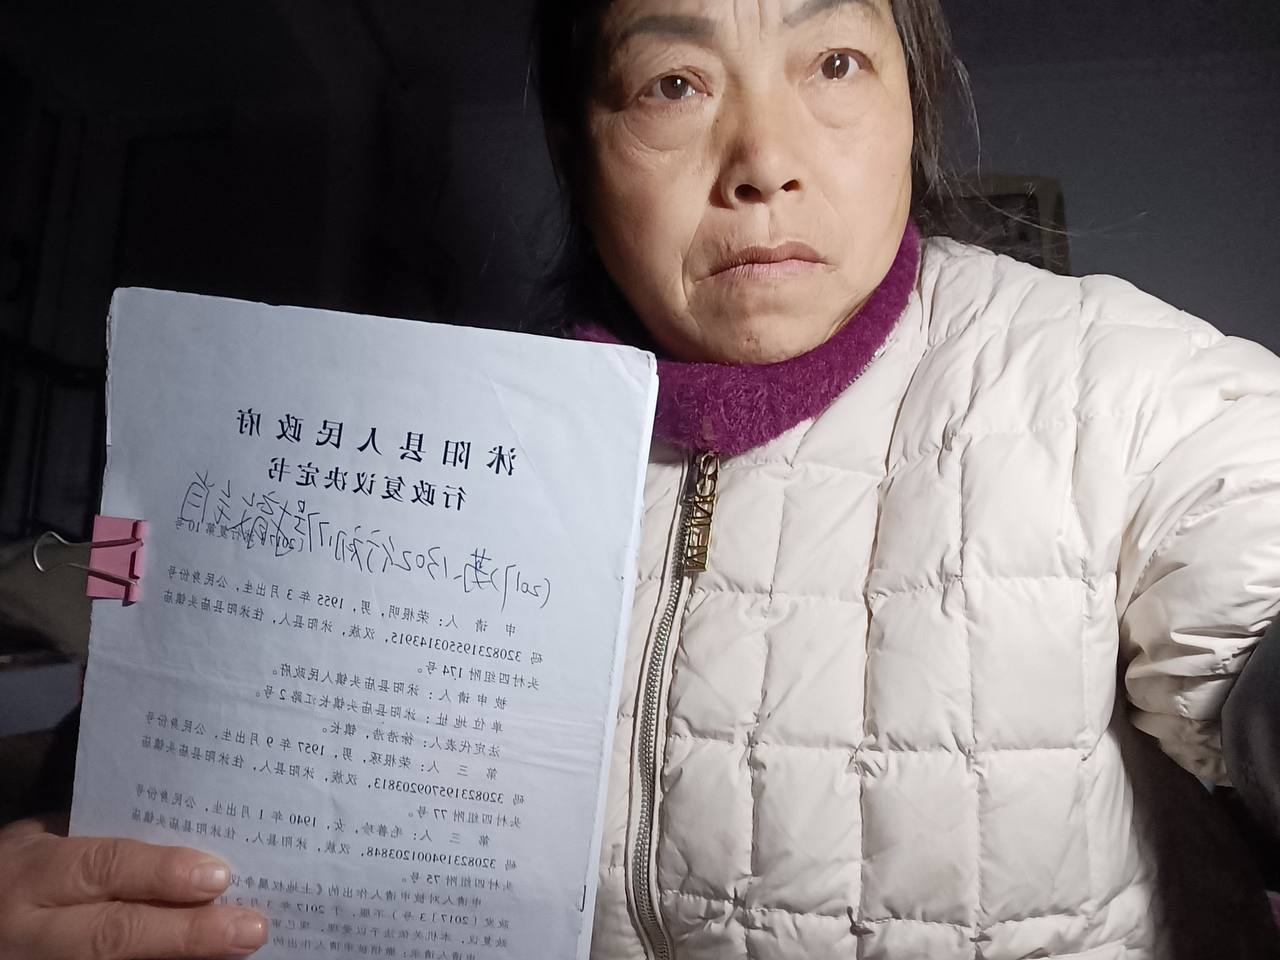 沭阳县人民政府
行政复议决定书
(2017)
1302行初71号
〔2017〕沭行复第10号
申请人：荣根明，男，1955年3月出生，公民身份号
码320823195503143915，汉族，沭阳县人，住沭阳县庙头镇庙
头村四组附174号。
被申请人：沭阳县庙头镇人民政府。
单位地址：沭阳县庙头镇长江路2号。
法定代表人：徐浩，镇长。
第三人：荣根琢，男，1957年9月出生，公民身份号
码320823195709203813，汉族，沭阳县人，住沭阳县庙头镇庙
头村四组附77号。
第三人：毛善珍，女，1940年1月出生，公民身份号
码320823194001203848，汉族，沭阳县人，住沭阳县庙头镇庙
头村四组附75号。
申请人对被申请人作出的《土地权属争议
政发〔2017〕3号）不服，于2017年3月2日
政复议，本机关依法予以受理，现已审
申请人请求：撤销被申请人作出的